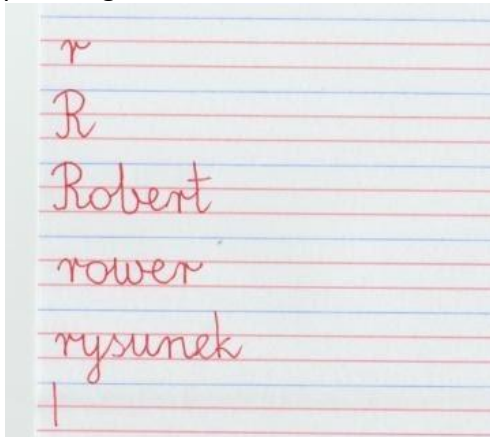 r
R
Robert
rower
rysunek